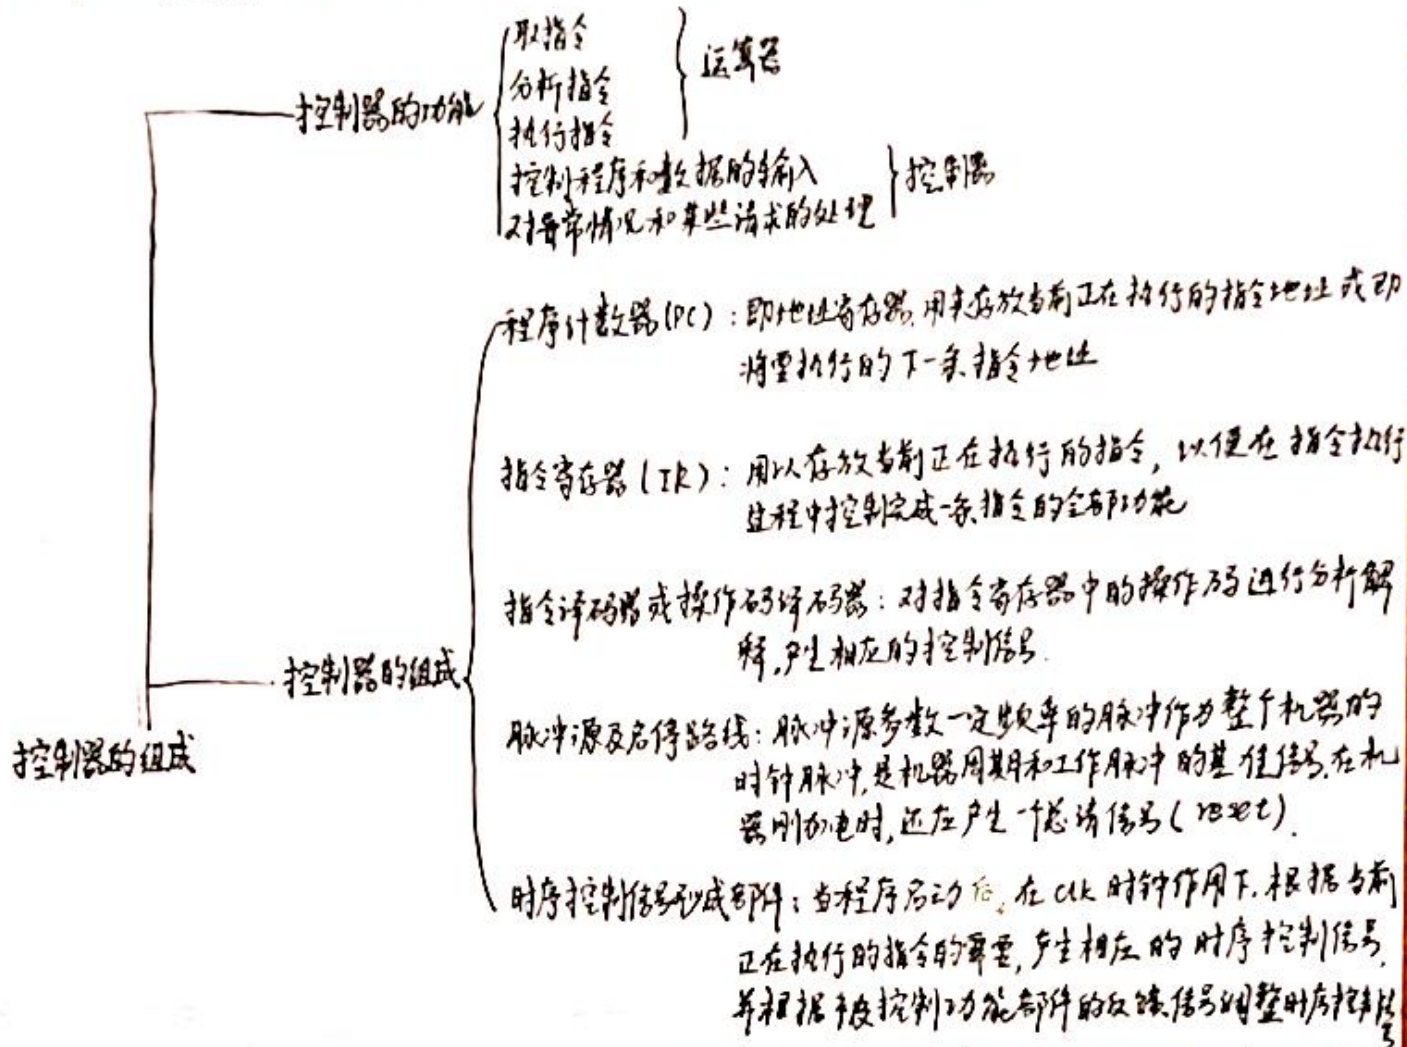 取指令
分析指令
执行指令
运算器
控制器的功能
控制程序和数据的输入
对异常情况和某些请求的处理
控制器
程序计数器(PC)：即地址寄存器，用来存放当前正在执行的指令地址或即
将要执行的下一条指令地址
指令寄存器(IR)：用以存放当前正在执行的指令，以便在指令执行
过程中控制完成一条指令的全部功能
指令译码器或操作码译码器：对指令寄存器中的操作码进行分析解
释，产生相应的控制信号.
控制器的组成
脉冲源及启停路线：脉冲源多数一定频率的脉冲作为整个机器的
时钟脉冲，是机器周期和工作脉冲的基准信号，在机
器刚加电时，还应产生一个总清信号(reset).
控制器的组成
时序控制信号形成部件：当程序启动后，在CLK时钟作用下，根据当前
正在执行的指令的需要，产生相应的时序控制信号，
并根据被控制功能部件的反馈信号调整时序控制信号